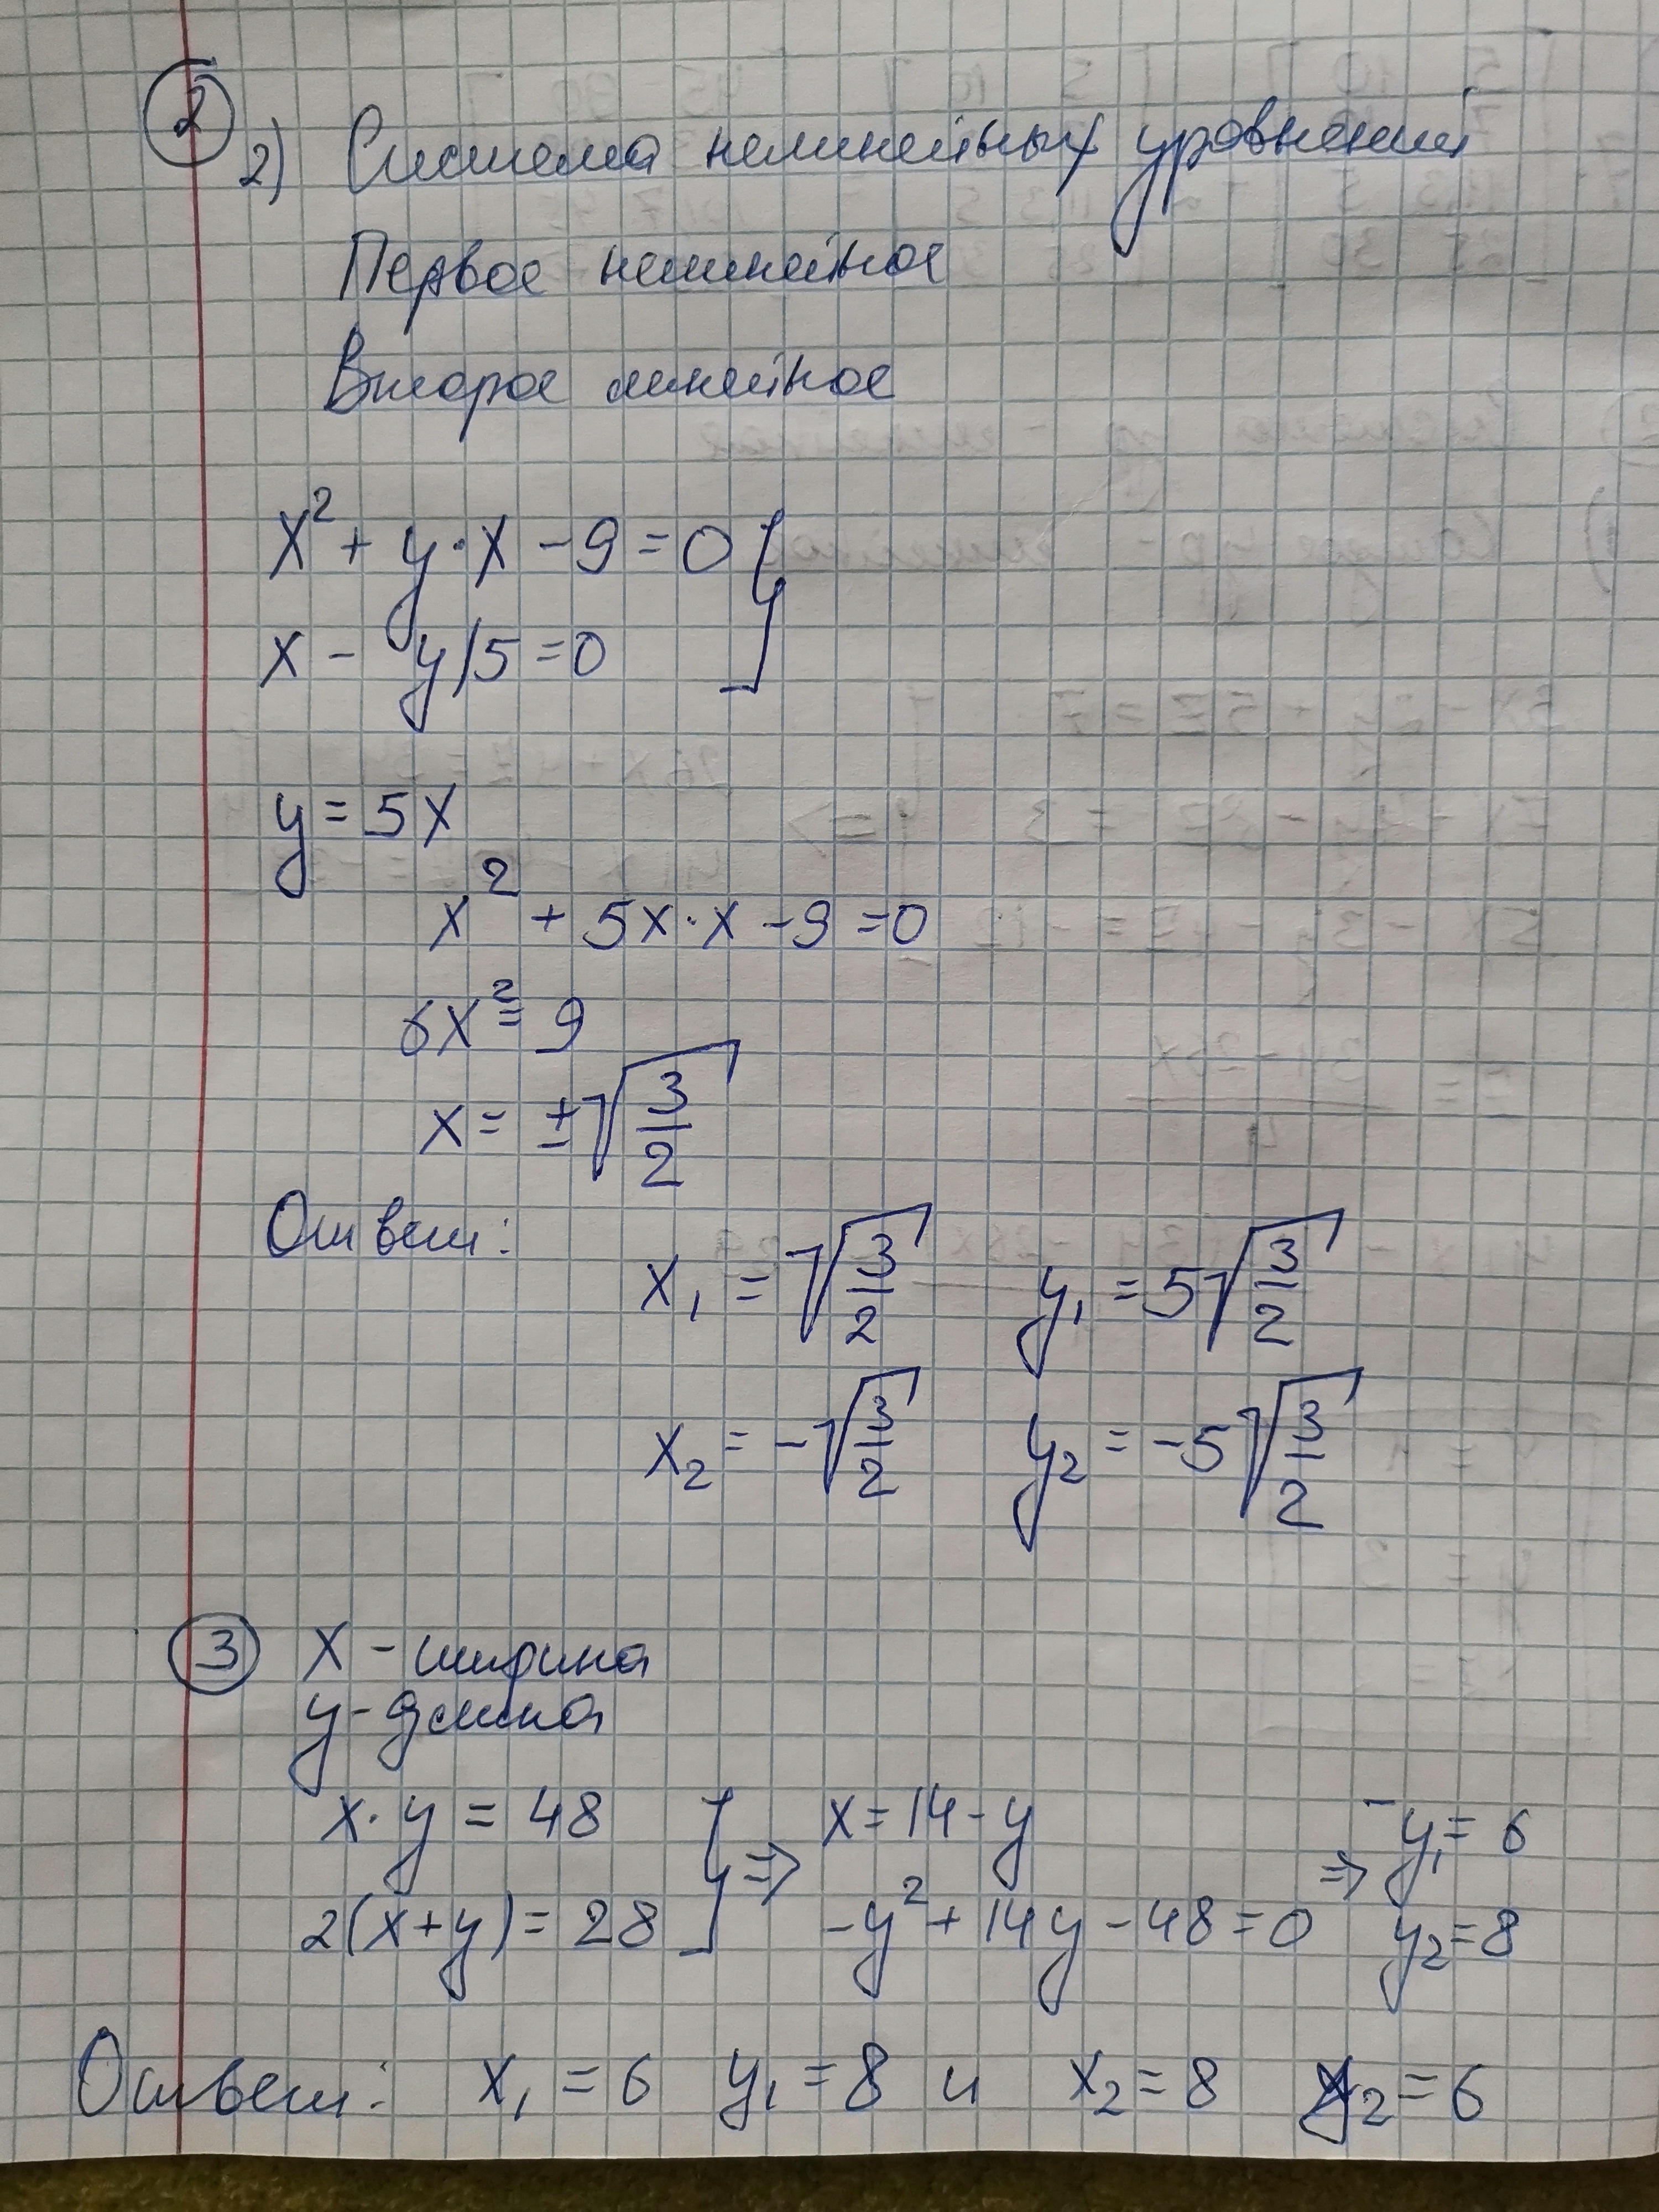 2
2) Система нелинейных уровнений
Первое нелинейное
Второе линейное
x² + y·x - 9 = 0 }
x - y/5 = 0
y = 5x
x² + 5x·x - 9 = 0
6x² = 9
x = ±√(3/2)
Ответ: x₁ = √(3/2) y₁ = 5√(3/2)
x₂ = -√(3/2) y₂ = -5√(3/2)
3 x - ширина
y - длина
x·y = 48 } => x = 14 - y => y₁ = 6
2(x+y) = 28 -y² + 14y - 48 = 0 y₂ = 8
Ответ: x₁ = 6 y₁ = 8 и x₂ = 8 y₂ = 6